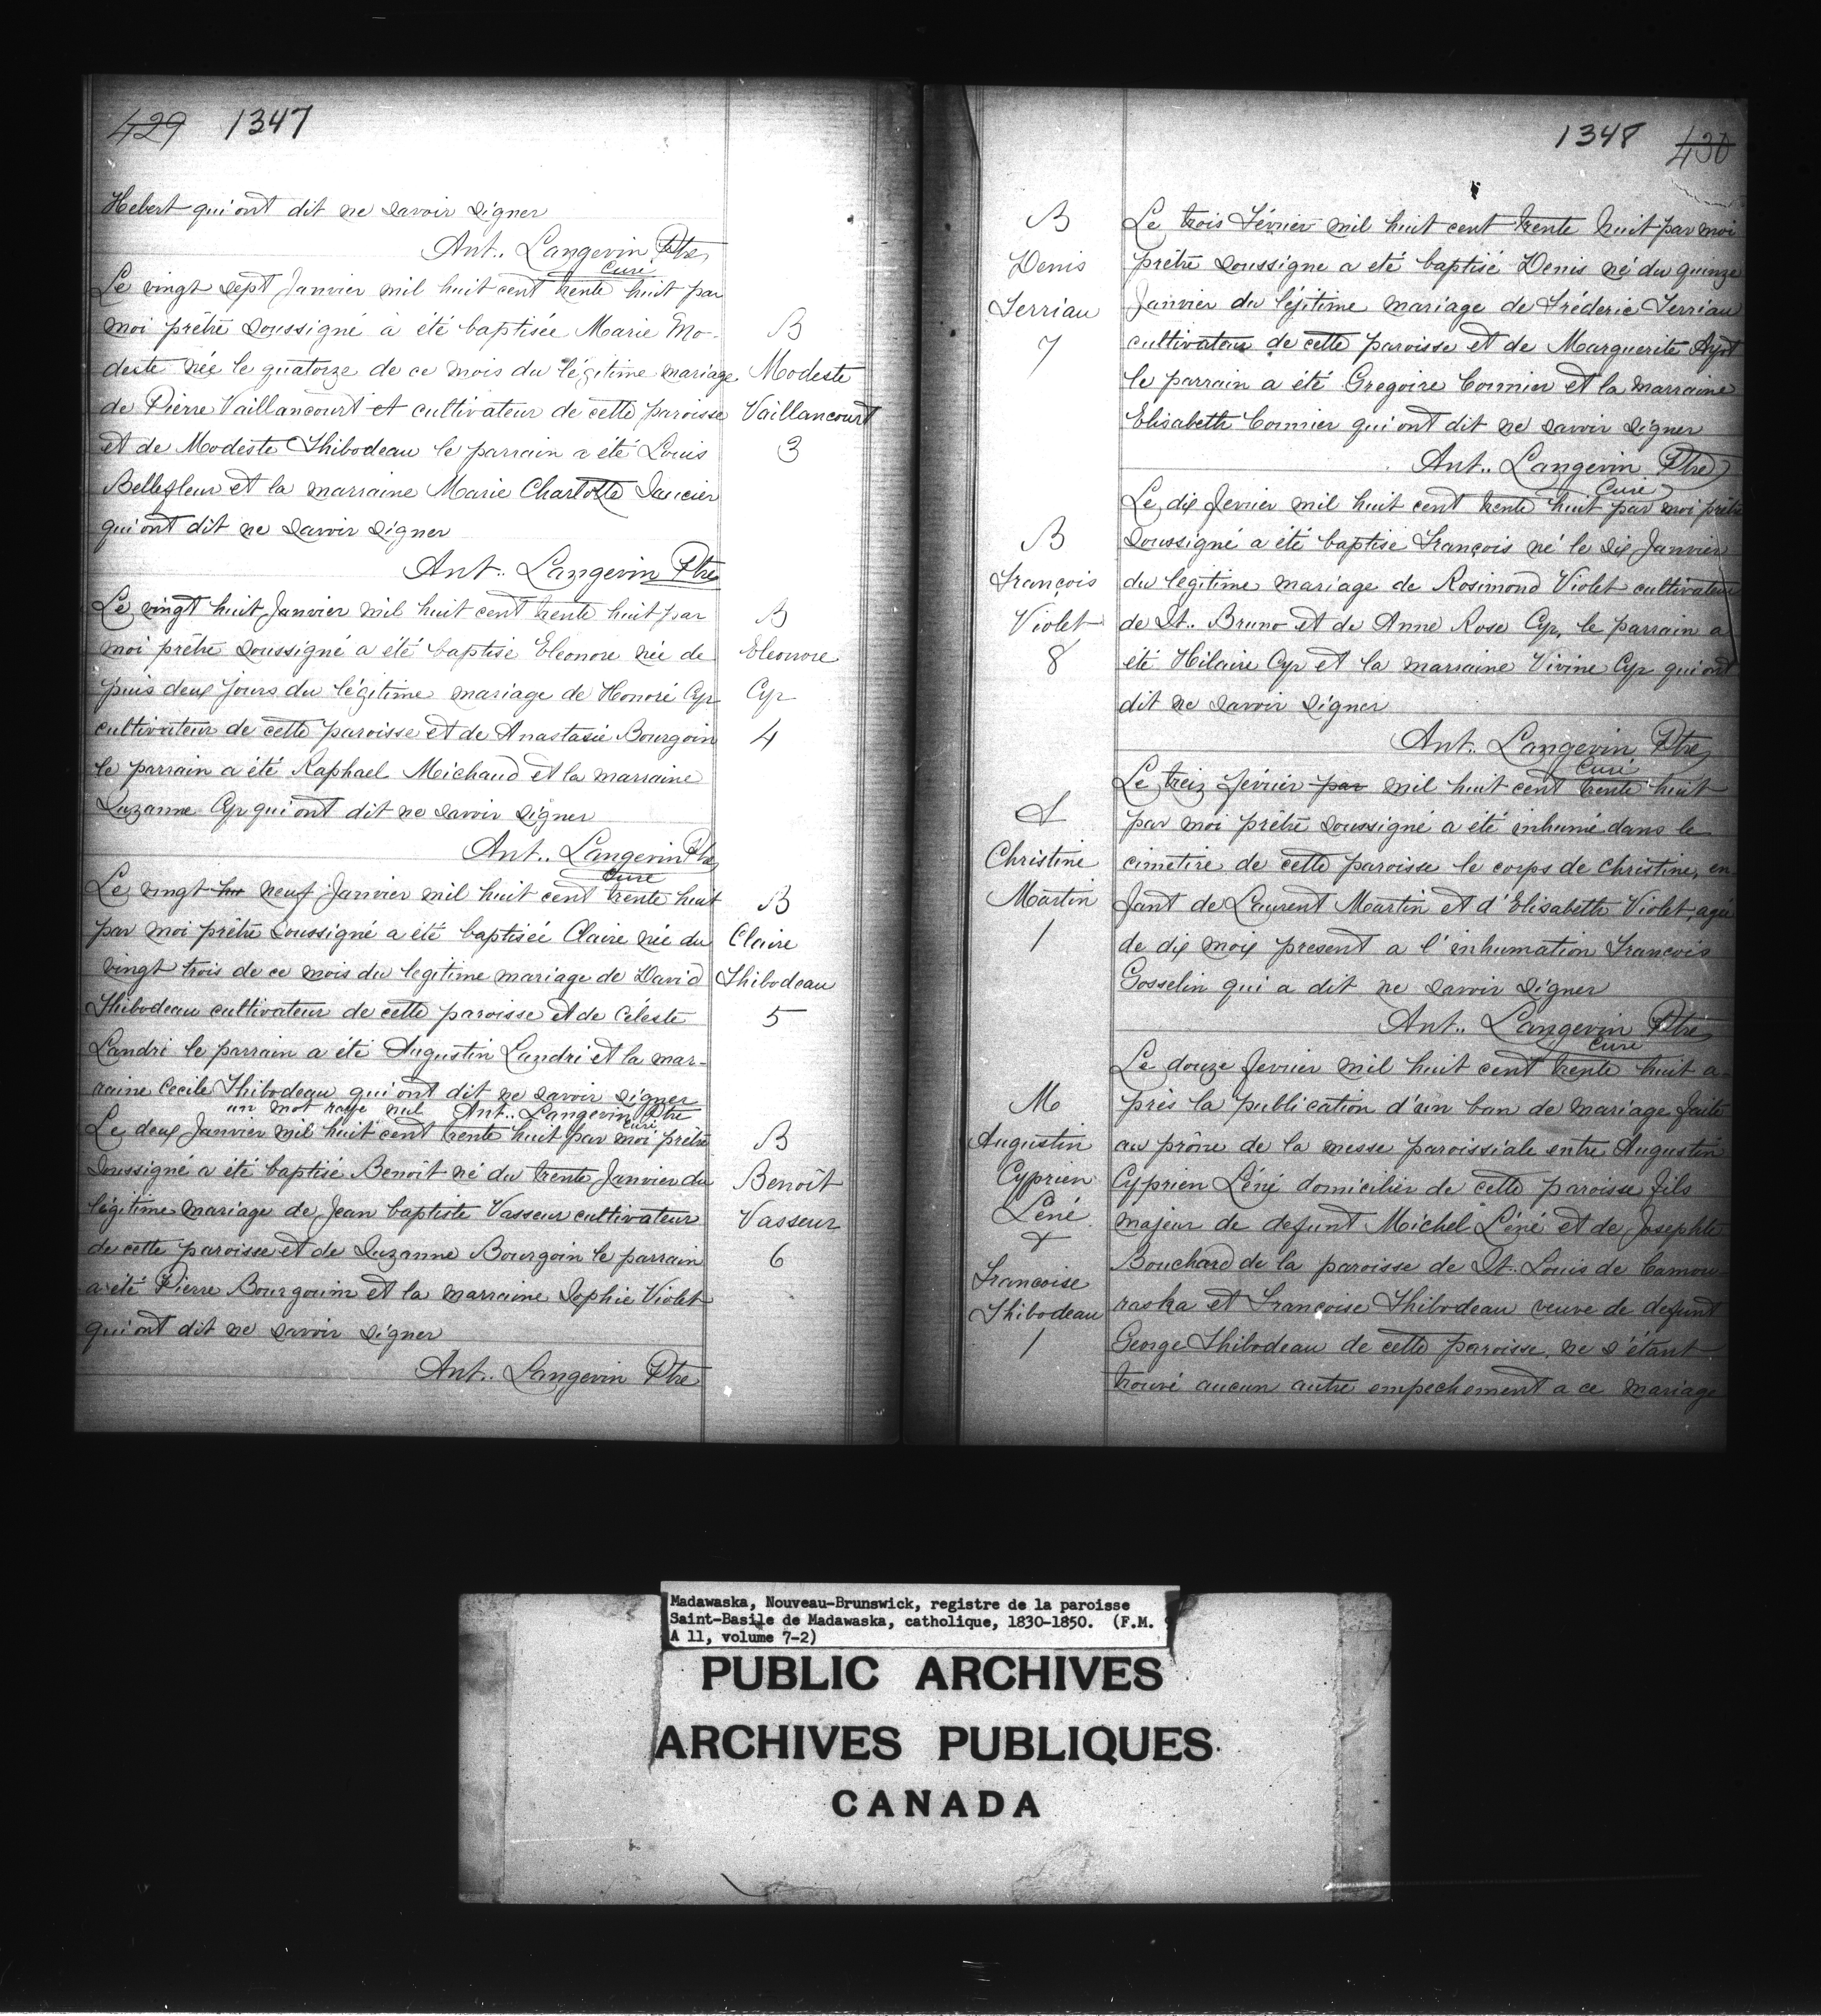 429 1347
Hebert qui ont dit ne savoir signer
Ant.. Langevin Ptre
Curé
Le vingt sept Janvier mil huit cent trente huit par
moi prêtre soussigné à été baptisée Marie Mo-
deste née le quatorze de ce mois du légitime mariage
de Pierre Vaillancourt et cultivateur de cette paroisse
et de Modeste Thibodeau le parrain a été Louis
Bellefleur et la marraine Marie Charlotte Saucier
qui ont dit ne savoir signer
Ant.. Langevin Ptre
B
Modeste
Vaillancourt
3
Le vingt huit Janvier mil huit cent trente huit par
moi prêtre soussigné a été baptisé Eleonore née de
puis deux jours du légitime mariage de Honoré Cyr
cultivateur de cette paroisse et de Anastasie Bourgoin
le parrain a été Raphael Michaud et la marraine
Suzanne Cyr qui ont dit ne savoir signer
Ant.. Langevin Ptre
Curé
B
Eleonore
Cyr
4
Le vingt hu neuf Janvier mil huit cent trente huit
par moi prêtre soussigné a été baptisée Claire née du
vingt trois de ce mois du legitime mariage de David
Thibodeau cultivateur de cette paroisse et de Céleste
Landri le parrain a été Augustin Landri et la mar-
raine Cecile Thibodeau qui ont dit ne savoir signer
un mot rayé nul Ant.. Langevin Ptre
Curé
B
Claire
Thibodeau
5
Le deux Janvier mil huit cent trente huit par moi prêtre
soussigné a été baptisé Benoît né du trente Janvier du
légitime mariage de Jean baptiste Vasseur cultivateur
de cette paroisse et de Suzanne Bourgoin le parrain
a été Pierre Bourgouin et la marraine Sophie Violet
qui ont dit ne savoir signer
Ant.. Langevin Ptre
B
Benoît
Vasseur
6
1348 430
B
Denis
Terriau
7
Le trois Février mil huit cent trente huit par moi
prêtre soussigne a eté baptisé Denis né du quinze
Janvier du légitime mariage de Fréderic Terriau
cultivateur de cette paroisse et de Marguerite Ayot
le parrain a été Gregoire Cormier et la marraine
Elisabeth Cormier qui ont dit ne savoir signer
Ant.. Langevin Ptre
Curé
B
François
Violet
8
Le dix fevrier mil huit cent trente huit par moi prêtre
soussigné a été baptisé François né le six Janvier
du legitime mariage de Rosimond Violet cultivateur
de St.. Bruno et de Anne Rose Cyr, le parrain a
été Hilaire Cyr et la marraine Vivine Cyr qui ont
dit ne savoir signer
Ant.. Langevin Ptre
Curé
S
Christine
Martin
1
Le treiz février par mil huit cent trente huit
par moi prêtre soussigné a été inhumé dans le
cimetire de cette paroisse le corps de Christine, en
fant de Laurent Martin et d'Elisabeth Violet, agée
de dix mois present a l'inhumation François
Gosselin qui a dit ne savoir signer
Ant.. Langevin Ptre
Curé
M
Augustin
Cyprien
Léné
&
Francoise
Thibodeau
1
Le douze fevrier mil huit cent trente huit a-
près la publication d'un ban de mariage faite
au prône de la messe paroissiale entre Augustin
Cyprien Léné domicilier de cette paroisse fils
majeur de defunt Michel Léné et de Josephte
Bouchard de la paroisse de St. Louis de Camou
raska et Françoise Thibodeau veuve de defunt
George Thibodeau de cette paroisse, ne s'étant
trouvé aucun autre empechement a ce mariage
Madawaska, Nouveau-Brunswick, registre de la paroisse
Saint-Basile de Madawaska, catholique, 1830-1850. (F.M. 9
A 11, volume 7-2)
PUBLIC ARCHIVES
ARCHIVES PUBLIQUES
CANADA